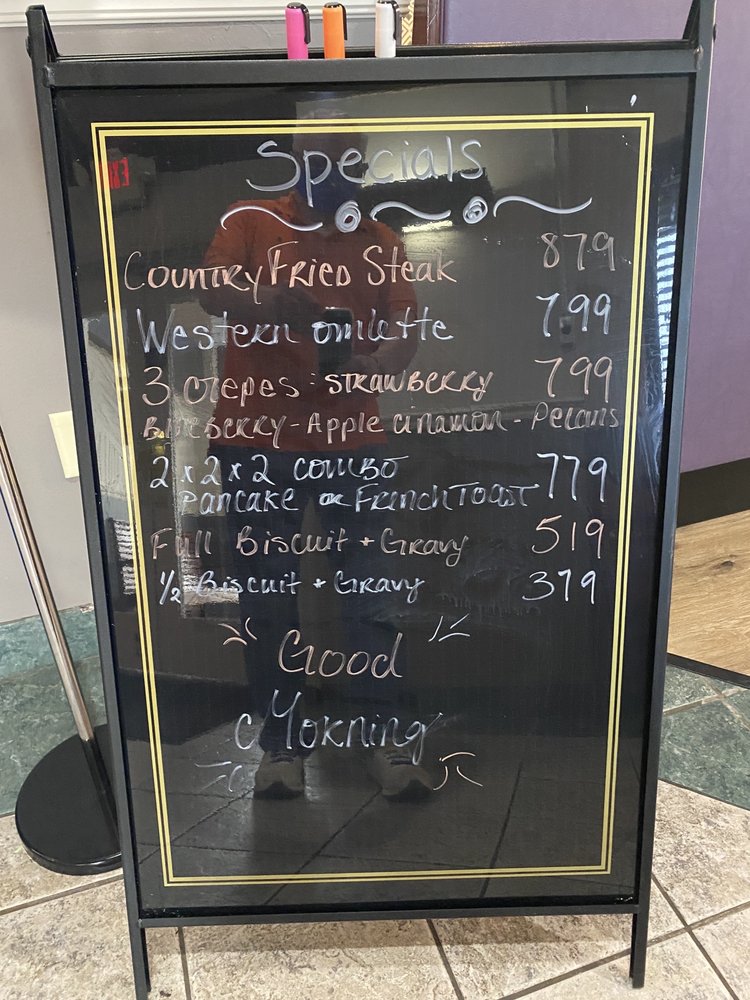 Specials
Country Fried Steak 879
Western omlette 799
3 crepes: strawberry 799
Blueberry - Apple cinamon - Pecans
2x2x2 combo 779
Pancake or French Toast
Full Biscuit + Gravy 519
1/2 Biscuit + Gravy 379
Good
Morning